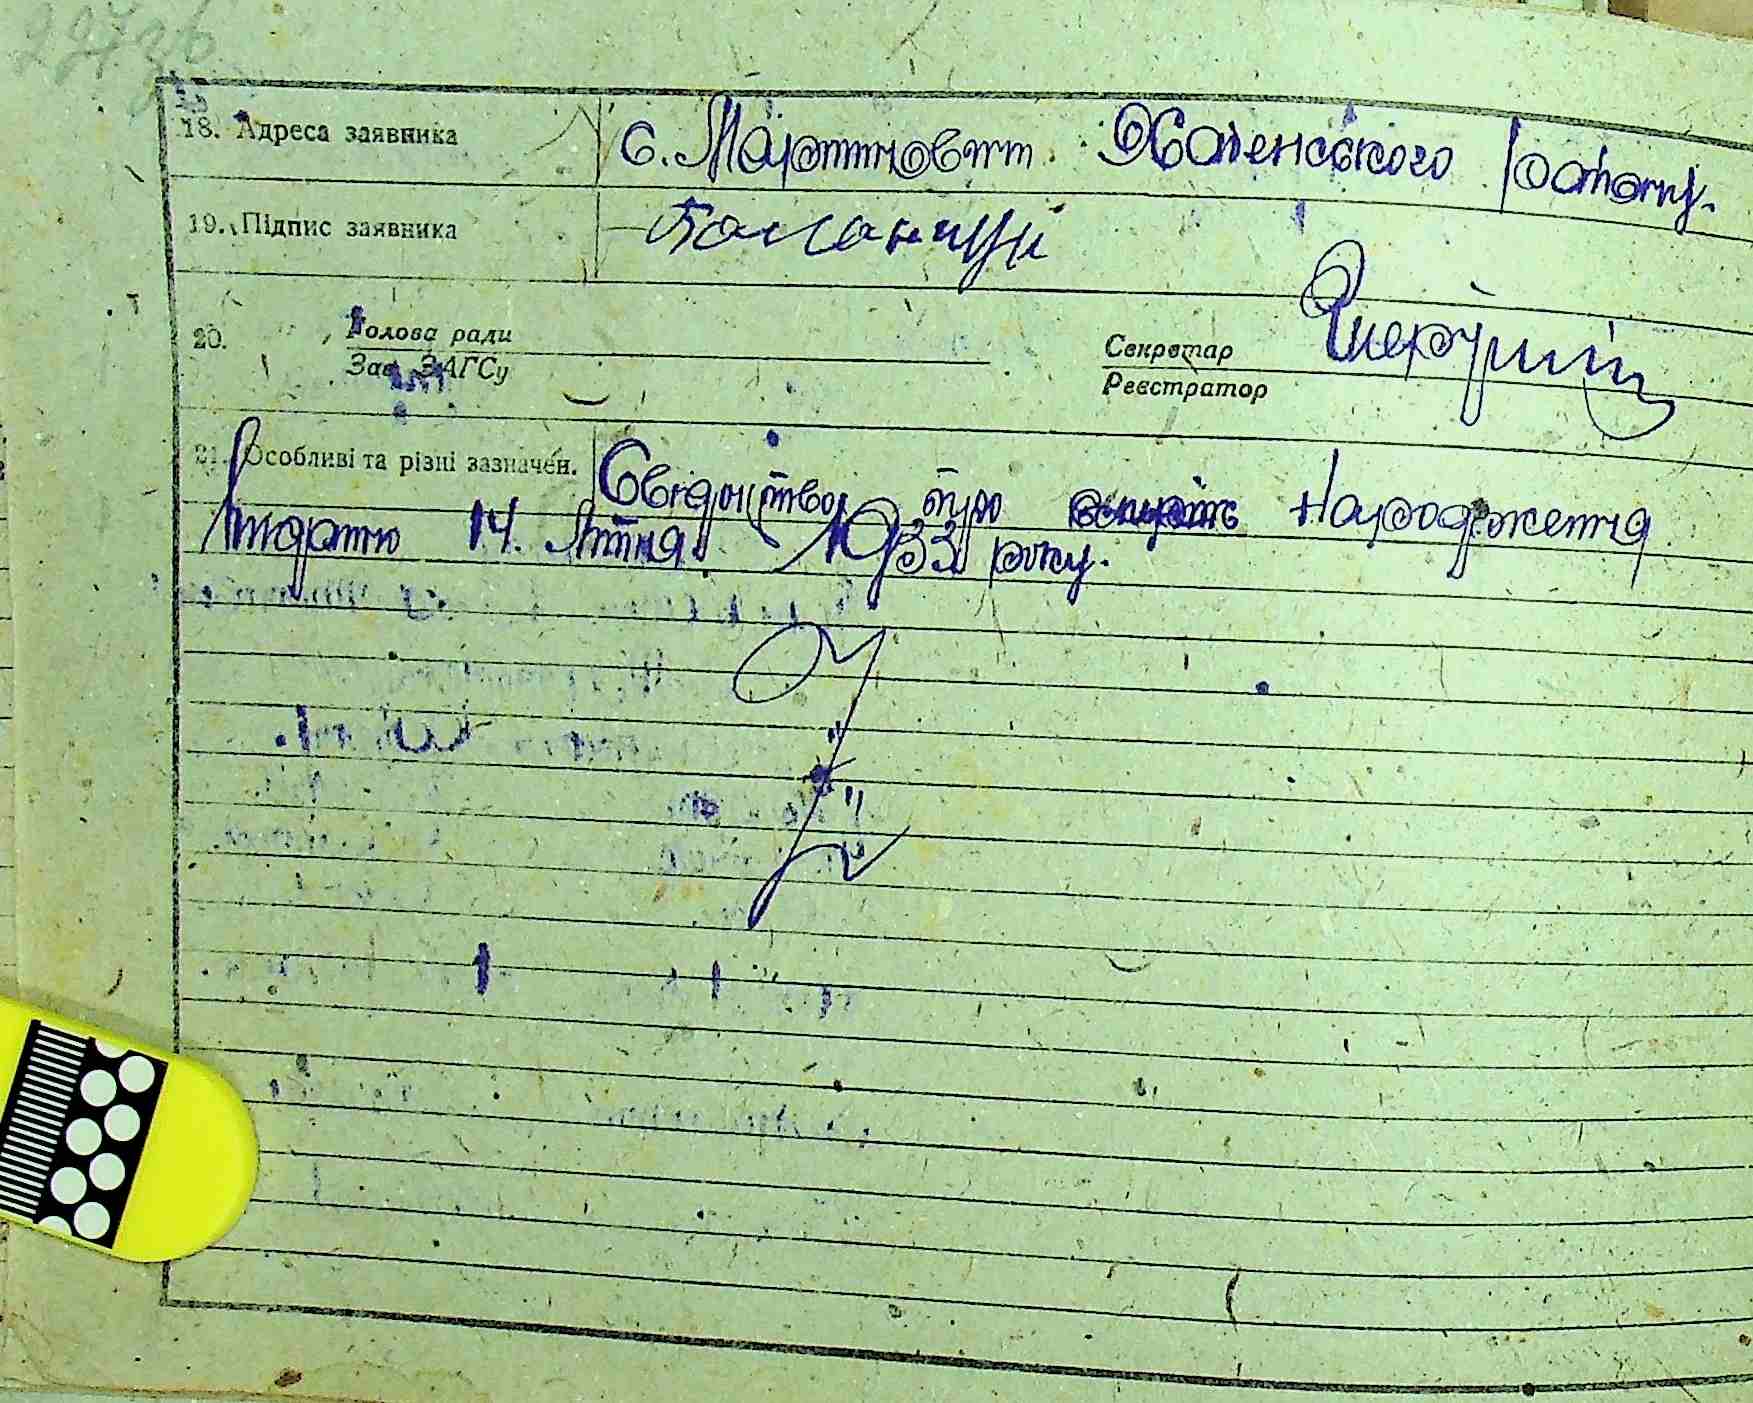 18. Адреса заявника с. Мартиновит Жаченського району.
19. Підпис заявника
20. Голова ради
Зав. ЗАГСу
Секретар
Реєстратор
21. Особливі та різні зазначен. Свідоцтво про смерть народження
видано 14. липня 1933 року.